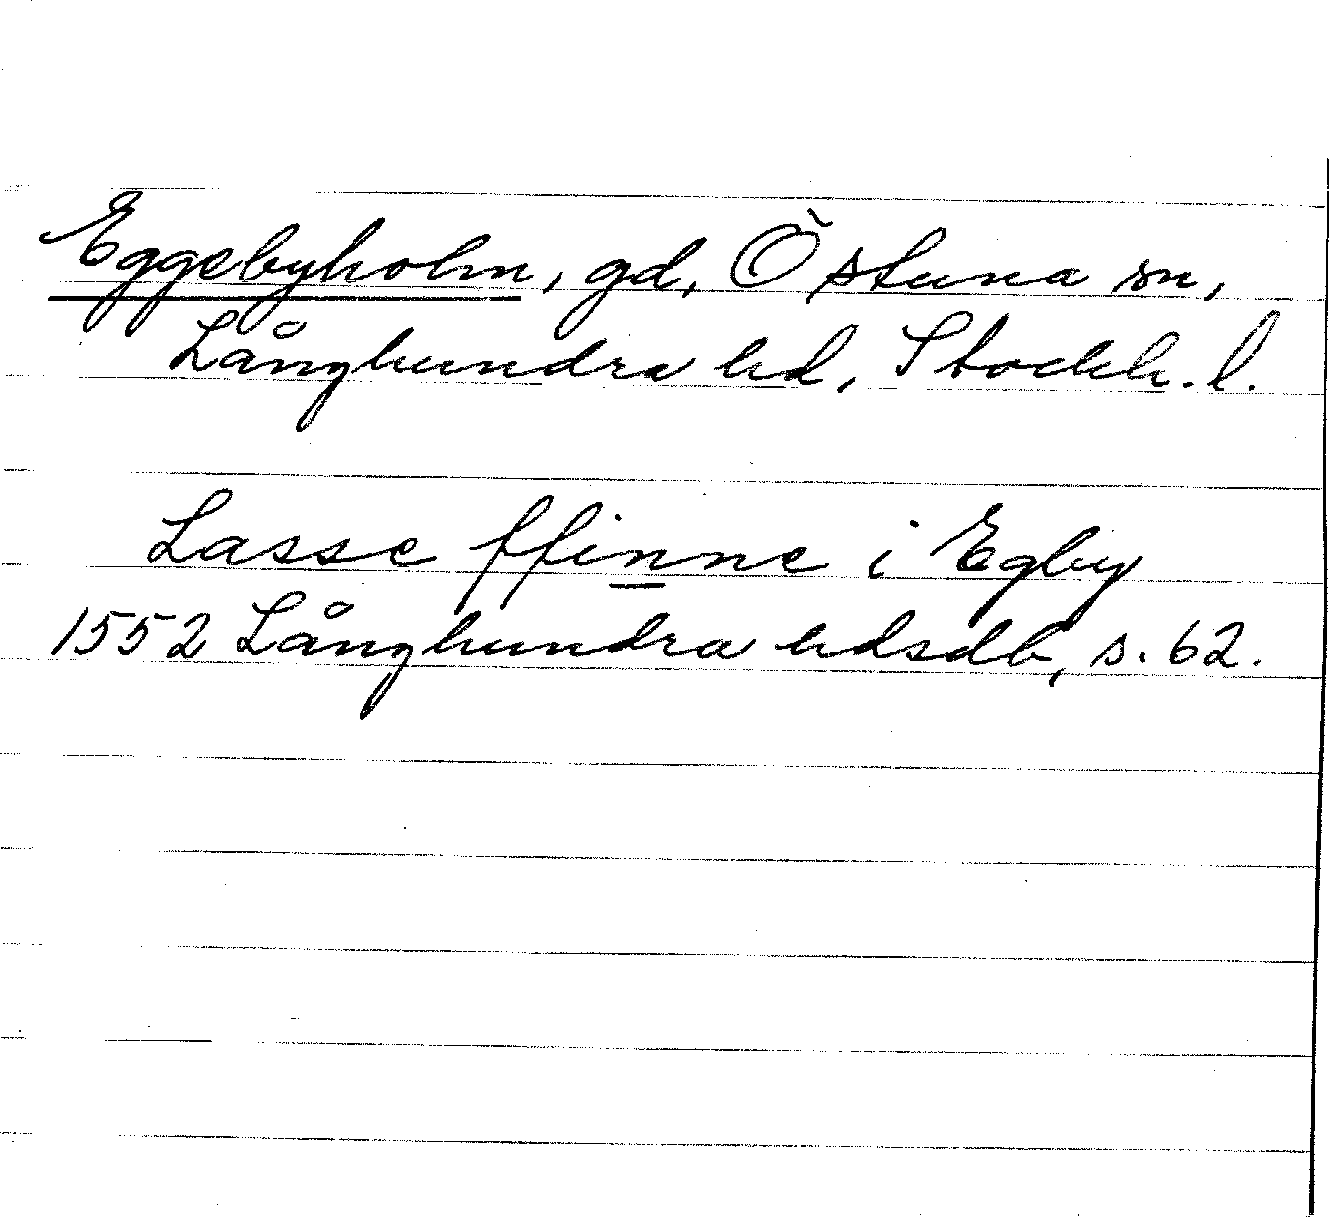 Eggebyholm, gd, Östuna sn,
Långhundra hd, Stockh. l.
Lasse ffinne i Egby
1552 Långhundra hdsdb, s. 62.